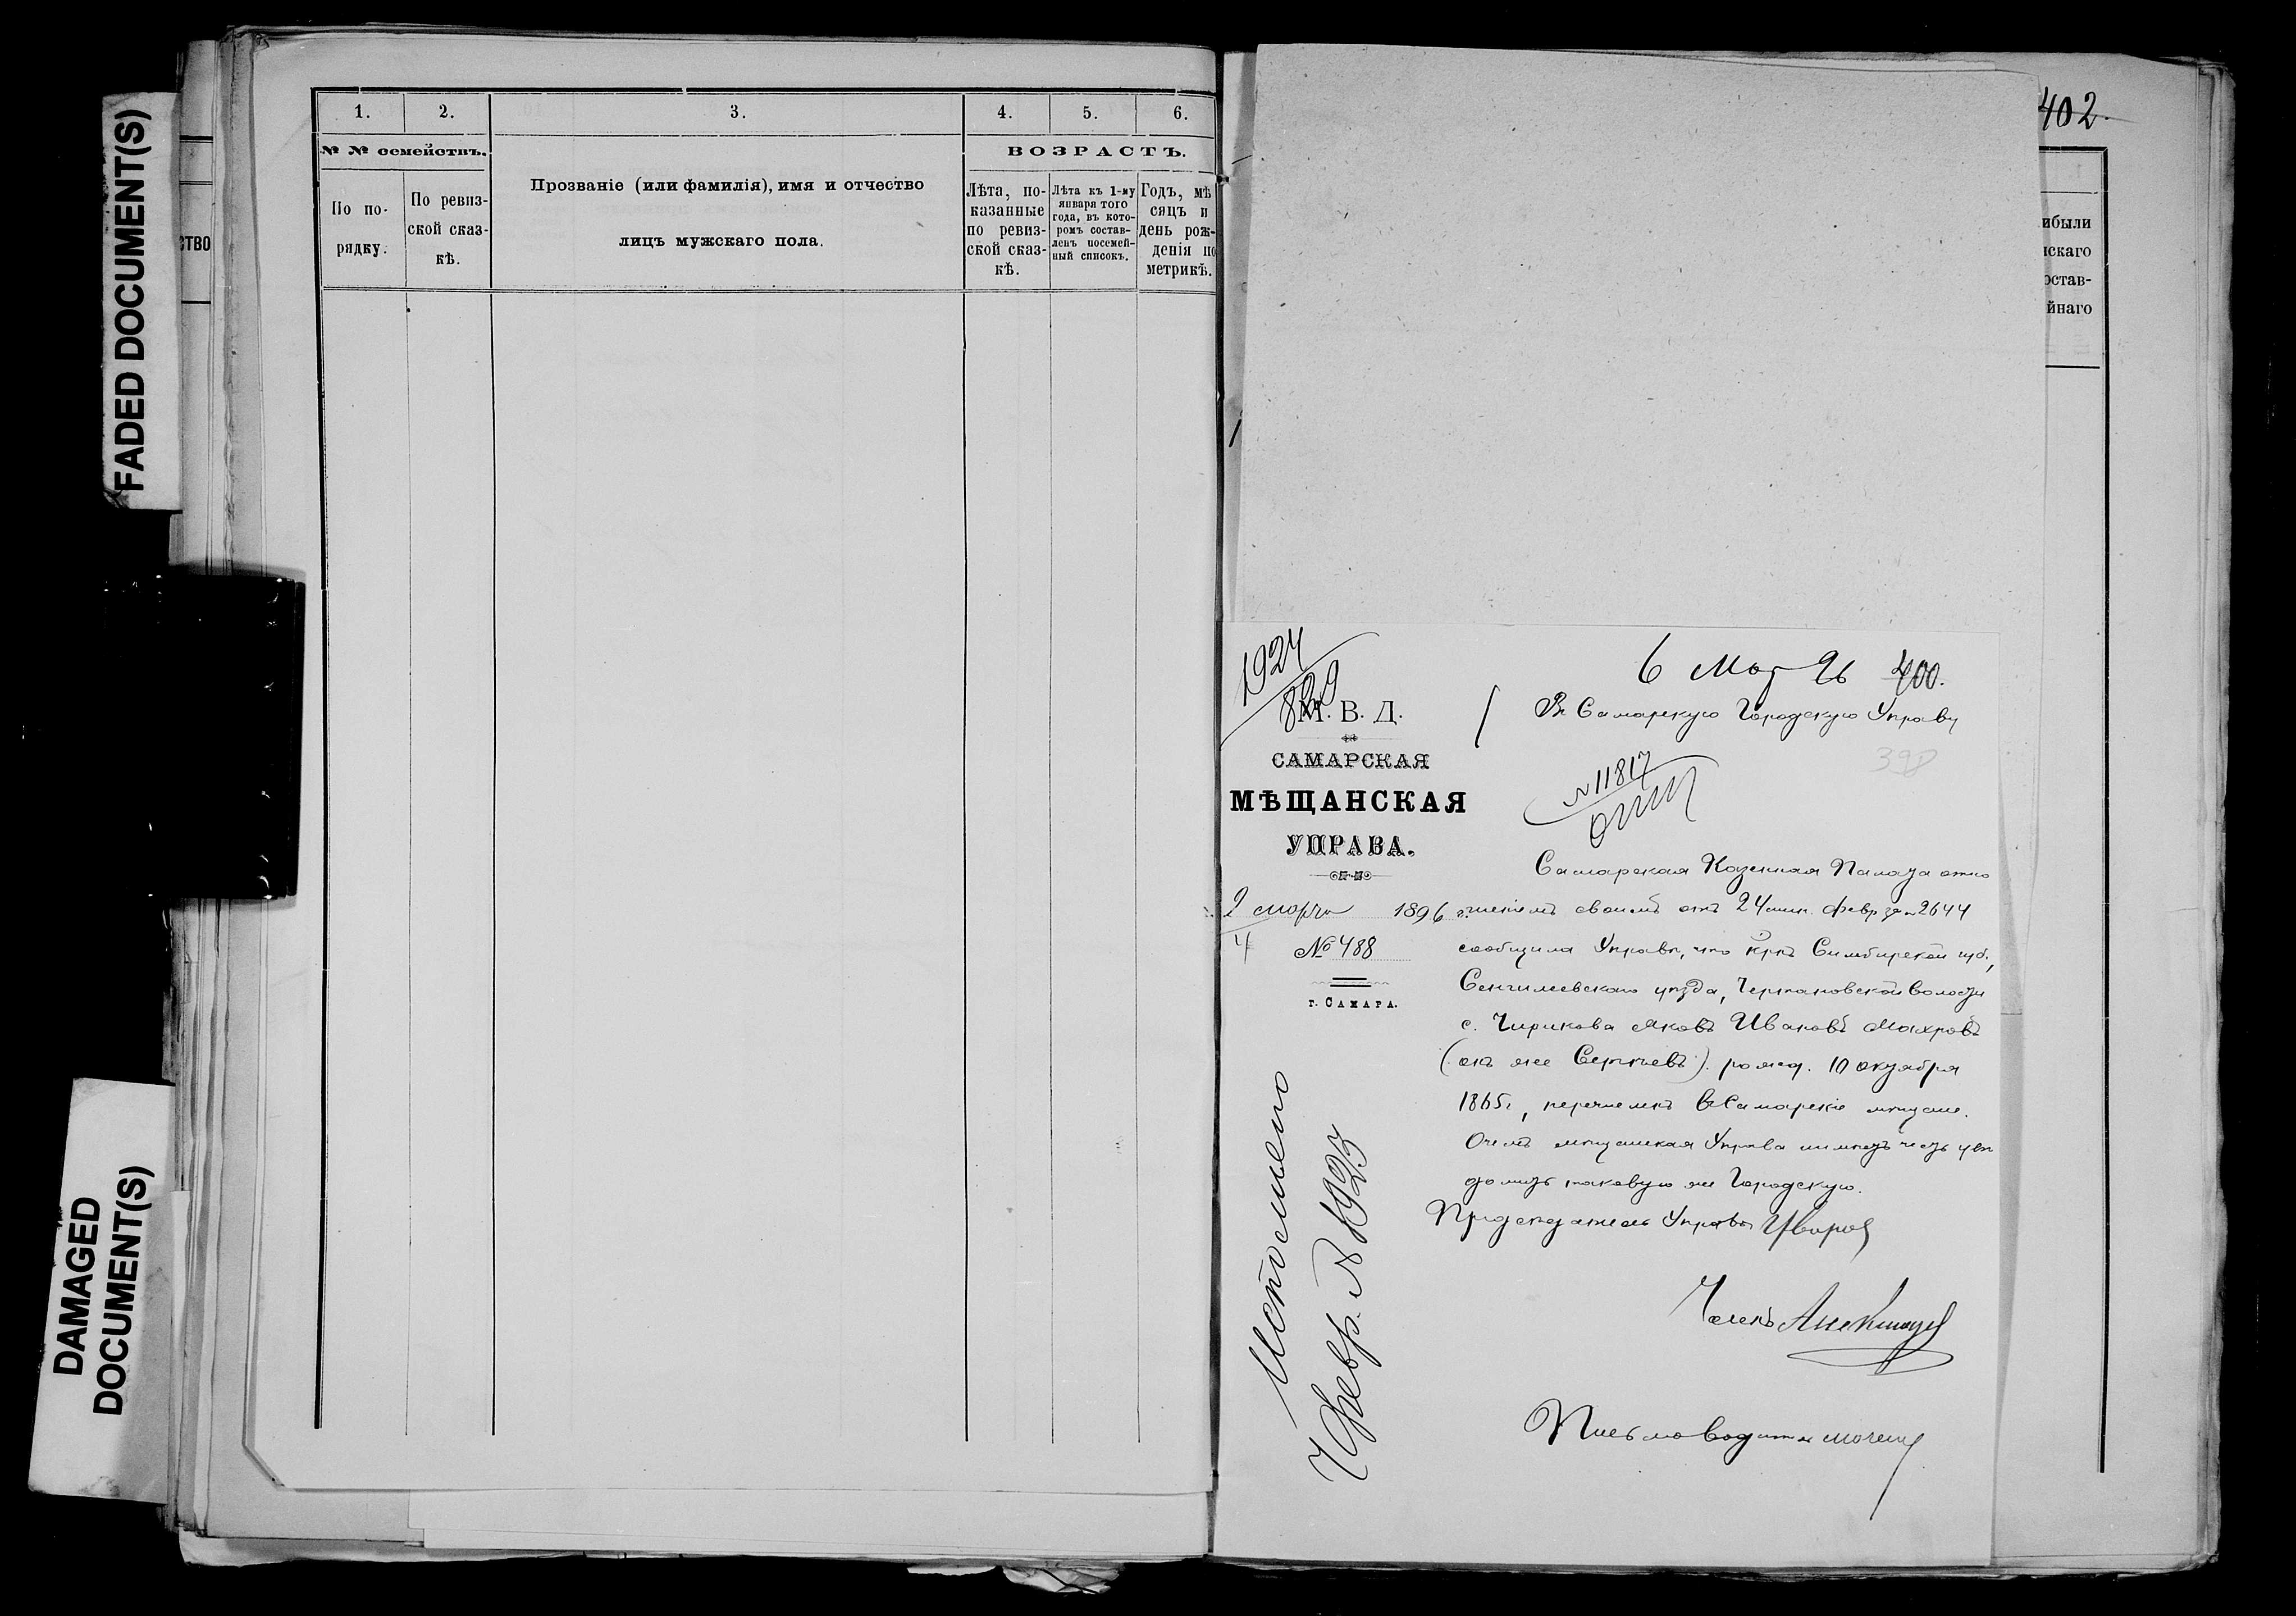 FADED DOCUMENT(S)
DAMAGED
DOCUMENT(S)
СТВО
1. 2. 3. 4. 5. 6.
№ № семействъ.
По по-
рядку.
По ревиз-
ской сказ-
кѣ.
Прозваніе (или фамилія), имя и отчество
лицъ мужскаго пола.
ВОЗРАСТЪ.
Лѣта, по-
казанные
по ревиз-
ской сказ-
кѣ.
Лѣта къ 1-му
января того
года, въ кото-
ромъ состав-
ленъ посемей-
ный списокъ.
Годъ, мѣ
сяцъ и
день рож-
денія по
метрикѣ.
402
ибыли
нскаго
остав-
йнаго
1924
829
6 Мар 96 400.
М. В. Д.
САМАРСКАЯ
МѢЩАНСКАЯ
УПРАВА.
2 марта 1896 г.
4 № 488
г. САМАРА.
Въ Самарскую Городскую Управу
398
№ 11817
Самарская Казенная Палата отно
шеніемъ своимъ отъ 24 мин. февр за № 2644
сообщила Управѣ, что крѣ Симбирской губ,
Сенгилеевскаго уѣзда, Волости
с. Чирикова Яковъ Ивановъ Махровъ
(онъ же Сергѣевъ). рожд. 10 октября
1865 г, перечисленъ въ Самарскіе мѣщане.
О чемъ мѣщанская Управа имѣетъ честь увѣ
домить таковую же Городскую.
Предсѣдатель Управы
Членъ
Письмоводитель
Исполнено
Ч Февр. № 1925